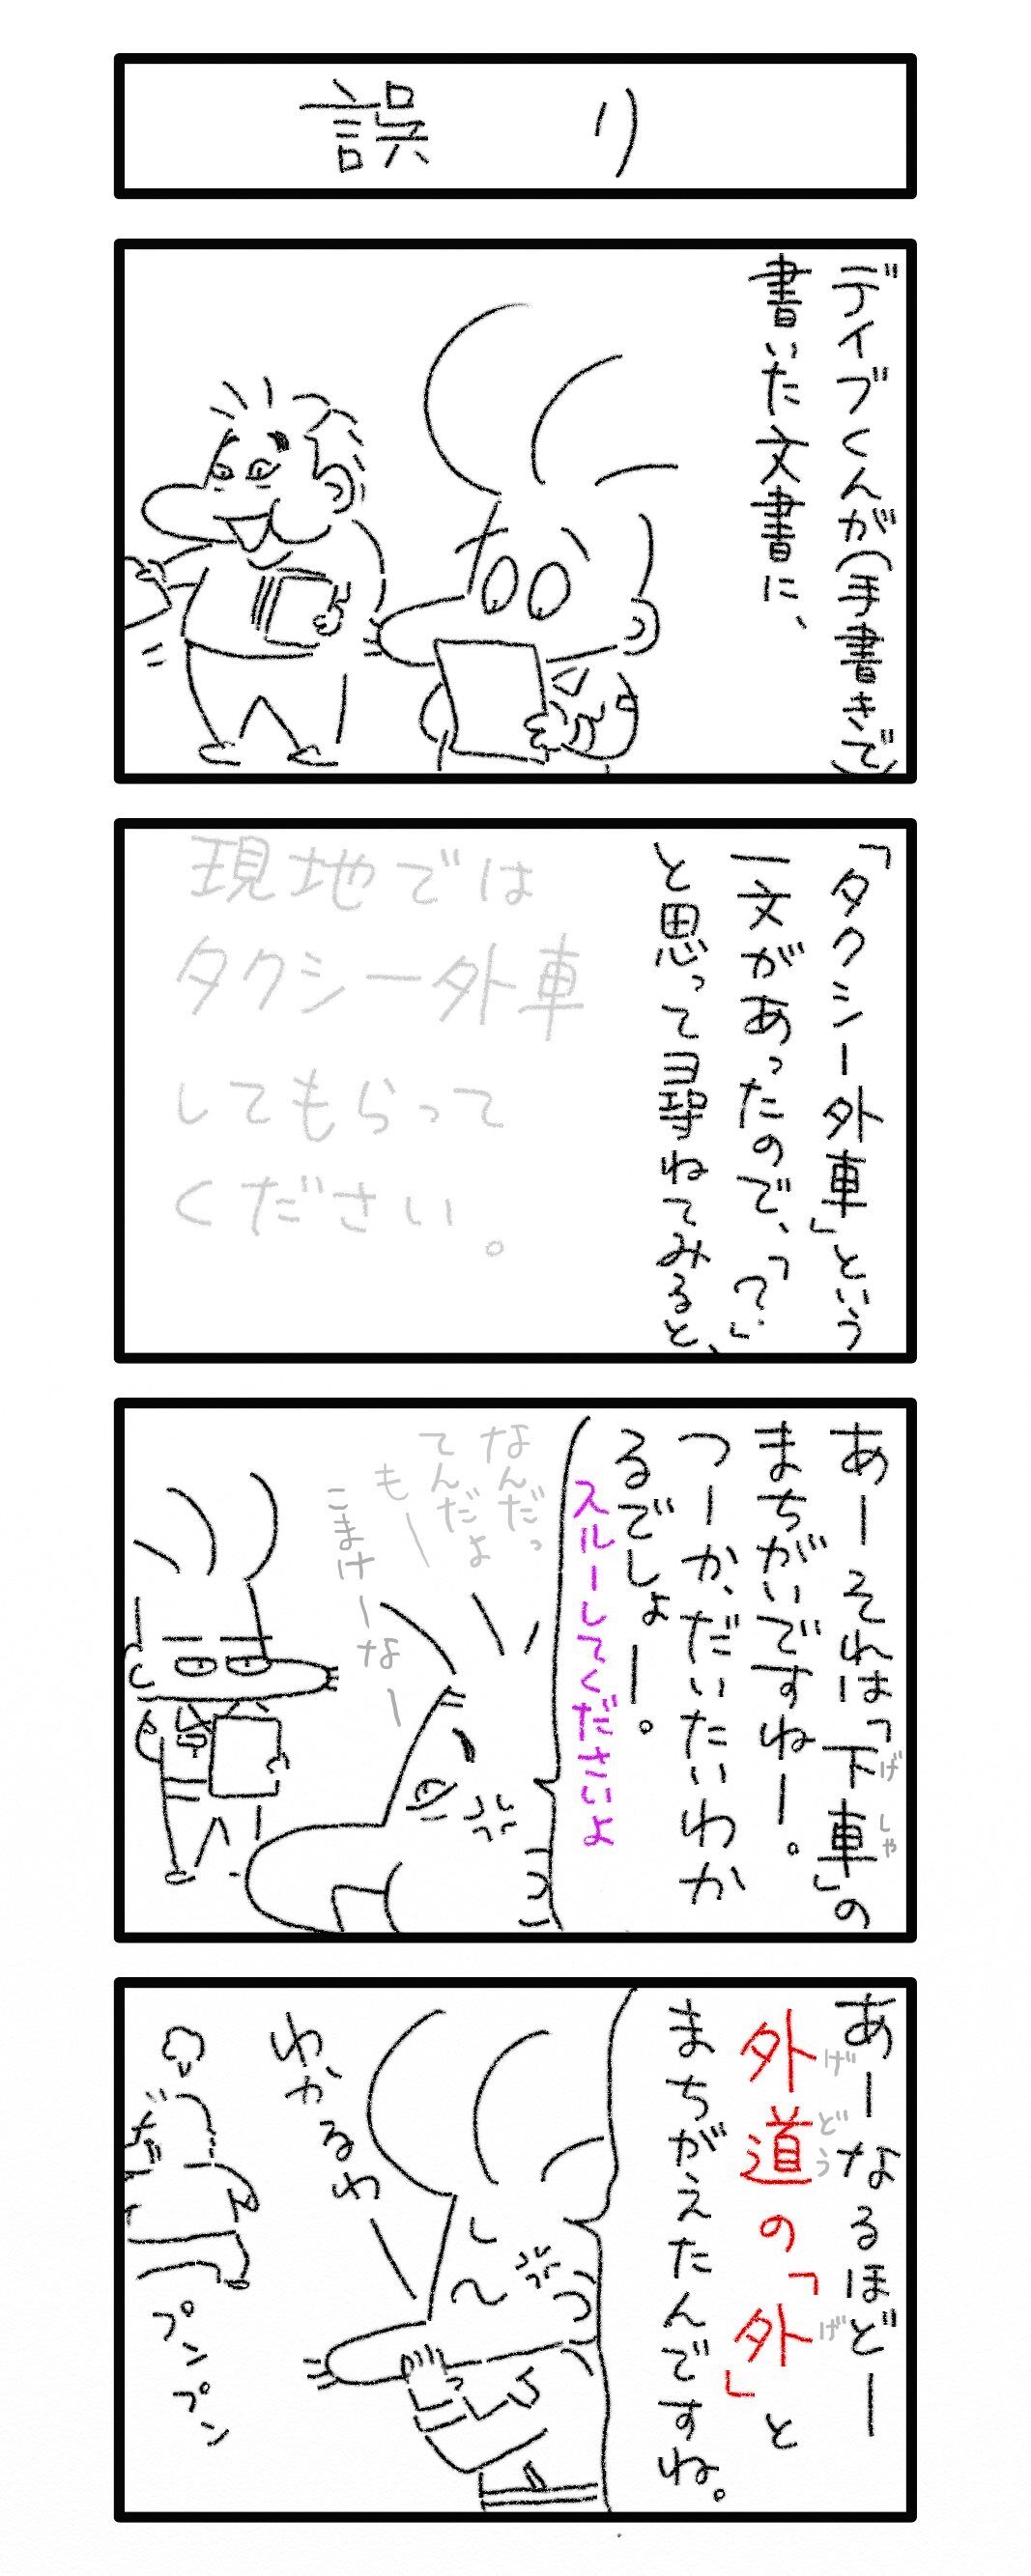 誤り
デイブくんが(手書きで)
書いた文書に、
「タクシー外車」という
一文があったので、「?」
と思って尋ねてみると、
現地では
タクシー外車
してもらって
ください。
あーそれは「下車」の
げしゃ
まちがいですねー。
つーか、だいたいわか
るでしょー。
スルーしてくださいよ
なんだっ
てんだよ
もー
こまけーなー
あーなるほどー
外道の「外」と
げどう
げ
まちがえたんですね。
わかるわー
プンプン